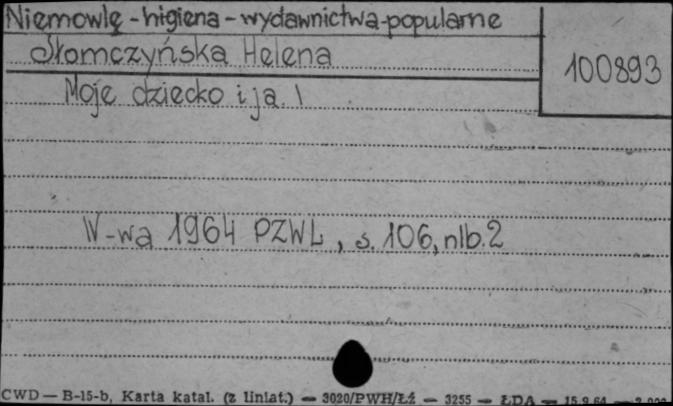 Niemowlę - higiena - wydawnictwa popularne
Słomczyńska Helena
100893
Moje dziecko i ja. I
W-wa 1964 PZWL, s. 106, nlb. 2
CWD — B-15-b, Karta katal. (z liniat.) — 3020/PWH/Łź — 3255 — ŁDA — 15.9.64 —